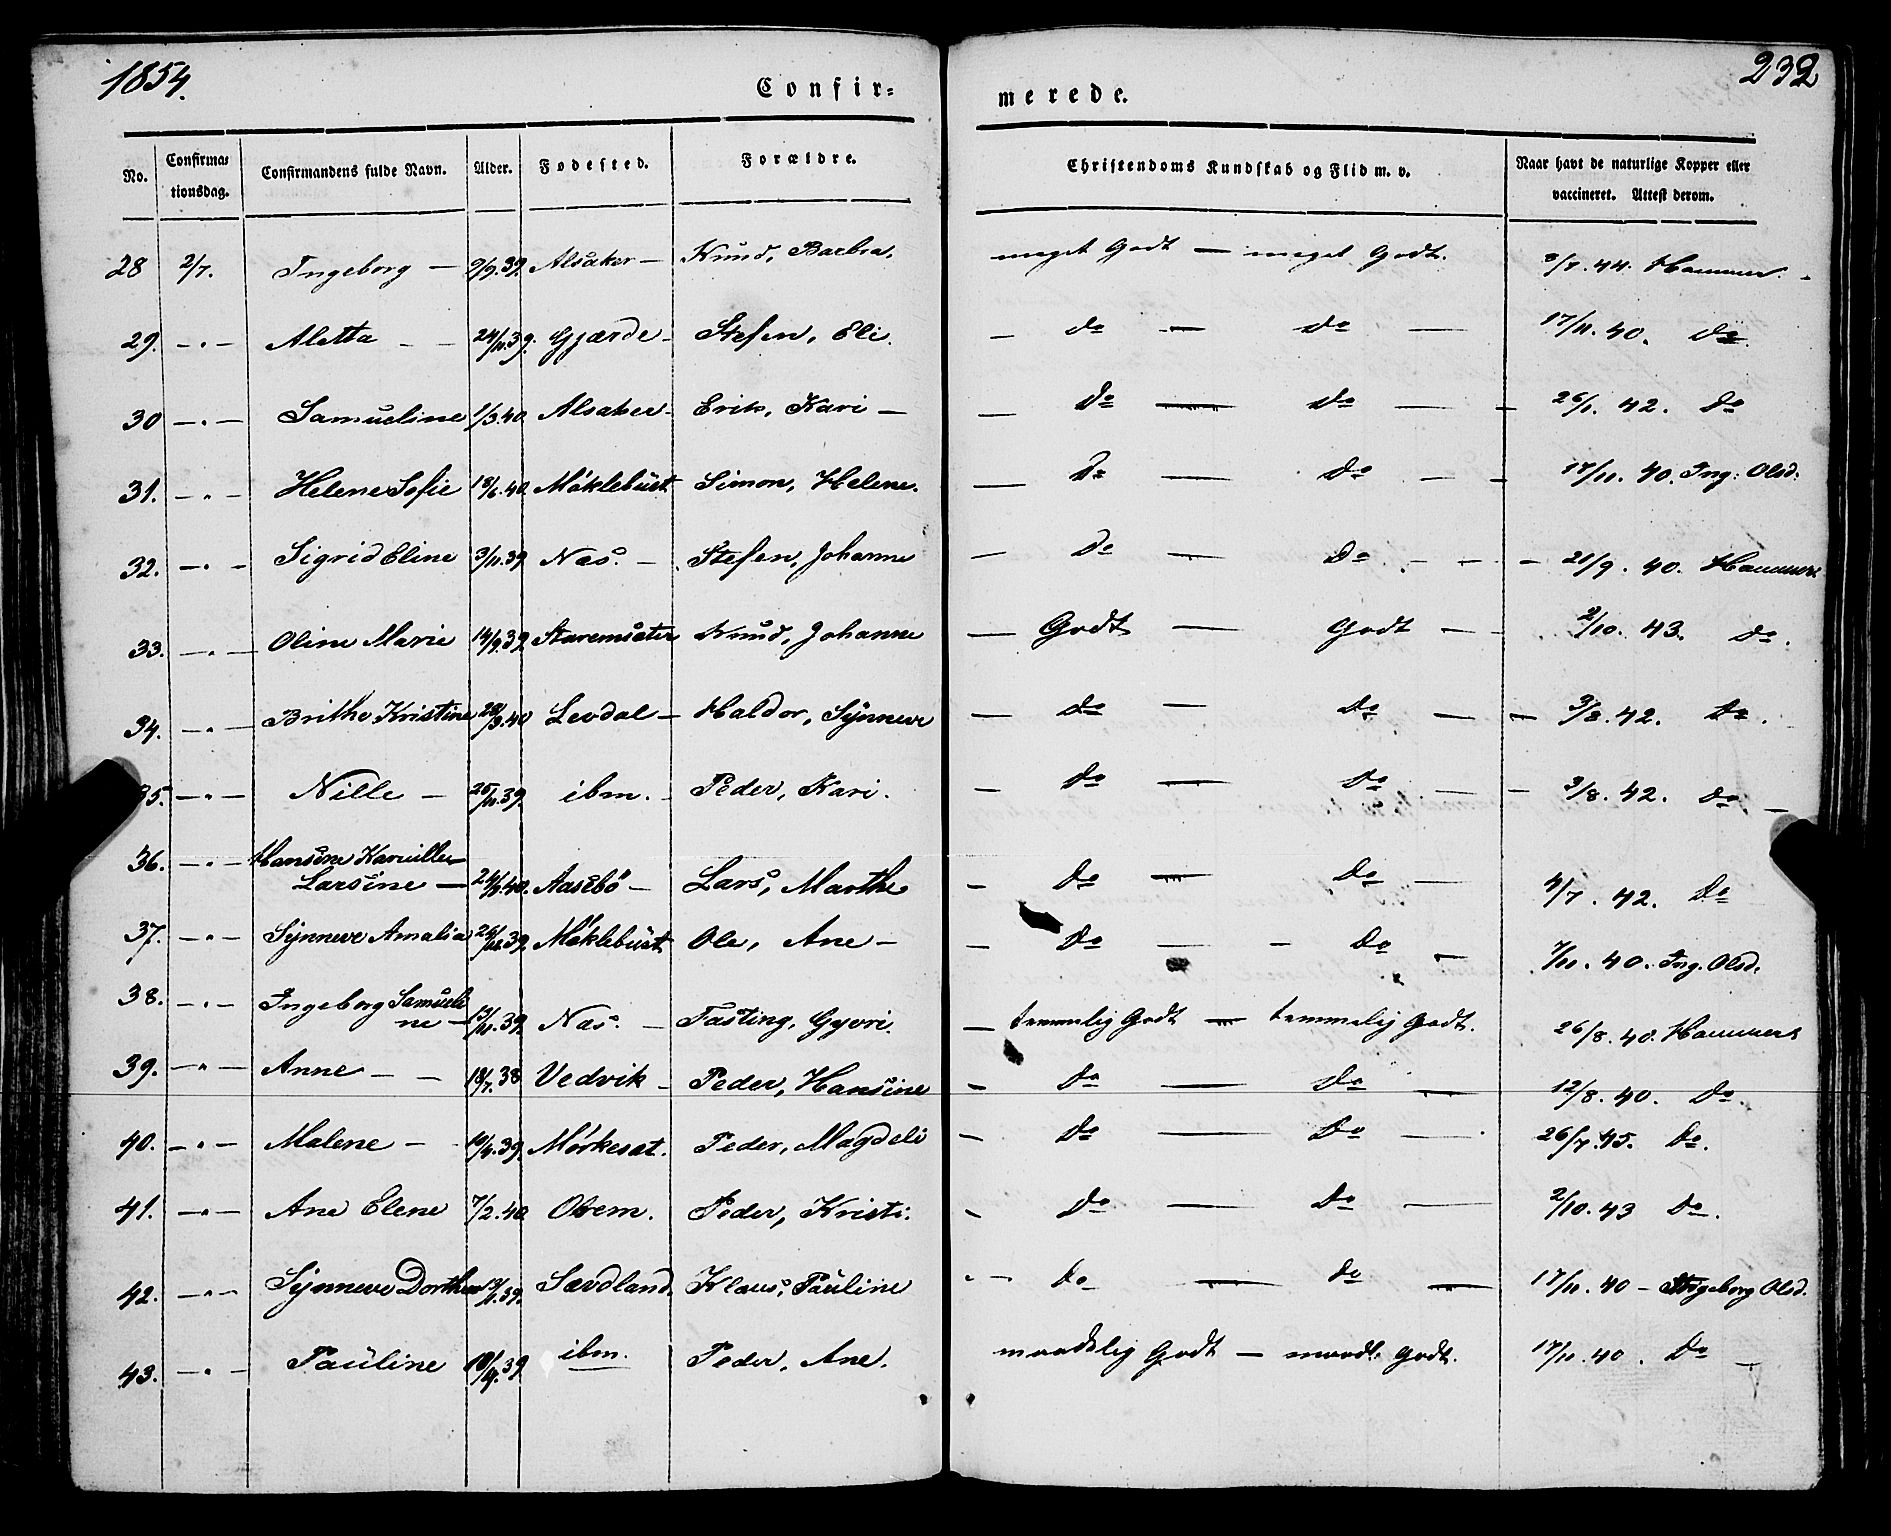 1854.
Confir=
merede.
232
No.
Confirmationsdag.
Confirmandens fulde Navn.
Alder.
Fødested.
Forældre.
Christendoms Kundskab og Flid m. v.
Naar havt de naturlige Kopper eller vaccineret. Attest derom.
28 2/7. Ingeborg — 2/9.39. Alsaker — Knud, Barbra. meget Godt — meget Godt. 3/7.44. Hammer.
29. — " — Aletta — — 24/11.39. Gjærde — Stefen, Eli. — do — do — 17/11.40. Do.
30 — " — Samueline 1/3.40. Alsaker — Erik, Kari — — Do — Do — 26/1.42. Do
31. — " — Helene Sofie 18/6.40. Møklebust Simon, Helene. — Do — Do — 17/11.40. Ing: Olsd:
32. — " — Sigrid Eline 3/11.39 Nas. — Stefen, Johanne — Do — Do — 21/9.40. Hammer
33. — " — Oline Marie 14/9.39. Staremsæter Knud, Johanne — Godt — Godt — 2/10.43. Do.
34. — " — Brithe Kristine 28/3.40 Levdal — Haldor, Synneve — do — Do — 3/8.42. Do.
35. — " — Nille — 25/11.39. ibm. — Peder, Kari. — Do — Do — 3/8.42. Do —
36. — " — Hansine
Larsine — 24/9.40. Aasebø — Lars, Marthe — Do — Do — 4/7.42. Do
37. — " — Synneve Amalia 26/11.39. Møklebust Ole, Ane — — Do — Do — 7/11.40. Ing. Olsd.
38. — " — Ingeborg Samueli
ne — 13/11.39. Nas. — Fasting, Gyori. — temmelig Godt — temmelig Godt. 26/8.40. Hammer
39. — " — Anne — — 18/7.38 Vedvik — Peder, Hansine — Do — Do — 12/8.40. Do.
40. — " — Malene — 10/4.39. Mørkesat. Peder, Magdeli — Do — Do — 26/7.45. Do.
41. — " — Ane Elene 7/2.40. Otrem. Peder, Kristi. — Do — Do — 2/10.43 Do.
42. — " — Synneve Dorthea 13/11.39. Sævdland. Klaus, Pauline — Do — do — 17/11.40 — Ingeborg Olsd.
43. — " — Pauline 18/4.39 ibm. Peder, Ane. maadelig Godt — maadl. Godt. 17/11.40. Do —